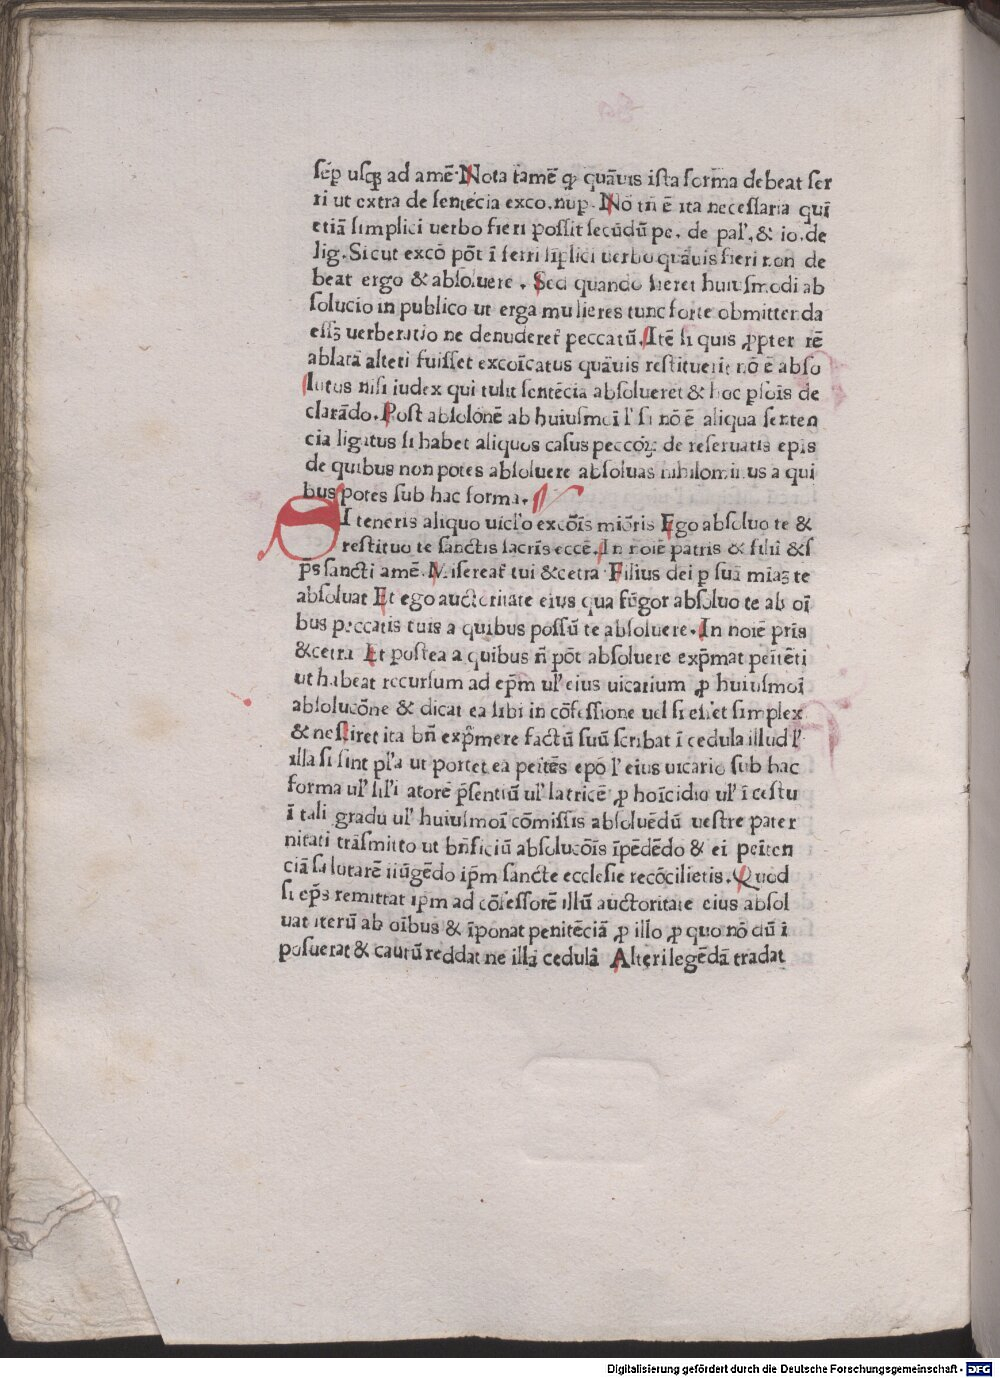 sep̄ usqʒ ad amē. Nota tamē ꝙ quāuis ista forma debeat fer
ri ut extra de sentēcia exco. nup. Nō tn̄ ē ita necessaria quī
etiā simplici uerbo fieri possit secūdū pe. de pal'. & io. de
lig. Sicut excō pōt ī ferri sīplici uerbo quāuis fieri non de
beat ergo & absoluere. Sed quando fieret huiusmodi ab
solucio in publico ut erga mulieres tunc forte obmittenda
essʒ uerberatio ne denuderet̄ peccatū. Itē si quis ꝓpter rē
ablatā alteri fuisset excoīcatus quāuis restituerit nō ē abso
lutus nisi iudex qui tulit sentēcia absolueret & hoc ꝑsoīs de
clarādo. Post absolōnē ab huiusmoī l' si nō ē aliqua senten
cia ligatus si habet aliquos casus peccōꝝ de reseruatis epis
de quibus non potes absoluere absoluas nihilominus a qui
bus potes sub hac forma.
SI teneris aliquo uicl'o excōīs miōris Ego absoluo te &
restituo te sanctis sacrīs eccē. In noīe patris & filii & s
ps̄ sancti amē. Misereat̄ tui & cetra Filius dei ꝑ suā mīaʒ te
absoluat Et ego auctoritate eius qua fūgor absoluo te ab oī
bus peccatis tuis a quibus possū te absoluere. In noīe pr̄is
& cetra Et postea a quibus n̄ pōt absoluere exp̄mat penitēti
ut habeat recursum ad ep̄m ul' eius uicarium ꝓ huiusmoī
absolucōne & dicat ea sibi in cōfessione uel si esset simplex
& nesciret ita bn̄ exp̄mere factū suū scribat ī cedula illud l'
illa si sint pl'a ut portet ea penitēs epō l' eius uicario sub hac
forma ul' sil'i latorē p̄sentiū ul' latricē ꝓ hoīcidio ul' īcestu
ī tali gradu ul' huiusmoī cōmissis absoluēdū uestre pater
nitati trāsmitto ut bn̄ficiū absolucōis īpēdēdo & ei peniten
ciā salutarē iiūgēdo ip̄m sancte ecclesie recōcilietis. Quod
si ep̄s remittat ip̄m ad cōfessorē illū auctoritate eius absol
uat iterū ab oībus & īponat penitēciā ꝓ illo ꝓ quo nō dū ī
posuerat & cautū reddat ne illā cedulā Alteri legēdā tradat
Digitalisierung gefördert durch die Deutsche Forschungsgemeinschaft - DFG